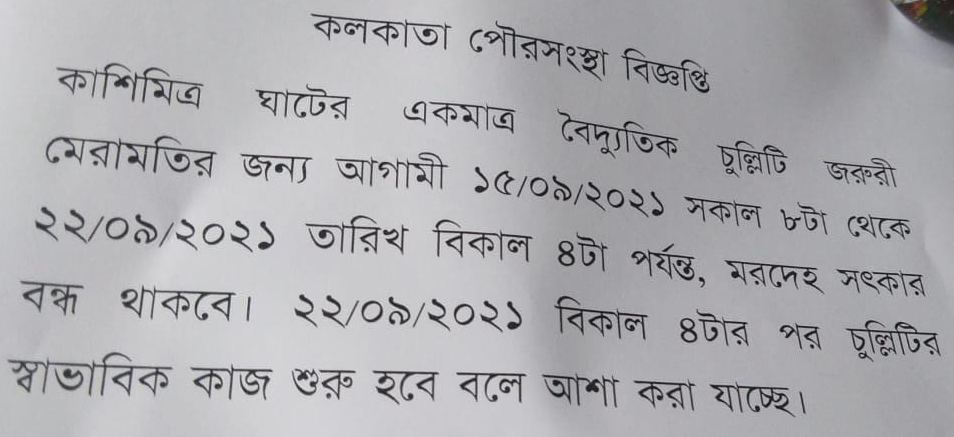 কলকাতা পৌরসংস্থা বিজ্ঞপ্তি
কাশিমিত্র ঘাটের একমাত্র বৈদ্যুতিক চুল্লিটি জরুরী
মেরামতির জন্য আগামী ১৫/০৯/২০২১ সকাল ৮টা থেকে
২২/০৯/২০২১ তারিখ বিকাল ৪টা পর্যন্ত, মরদেহ সৎকার
বন্ধ থাকবে। ২২/০৯/২০২১ বিকাল ৪টার পর চুল্লিটির
স্বাভাবিক কাজ শুরু হবে বলে আশা করা যাচ্ছে।